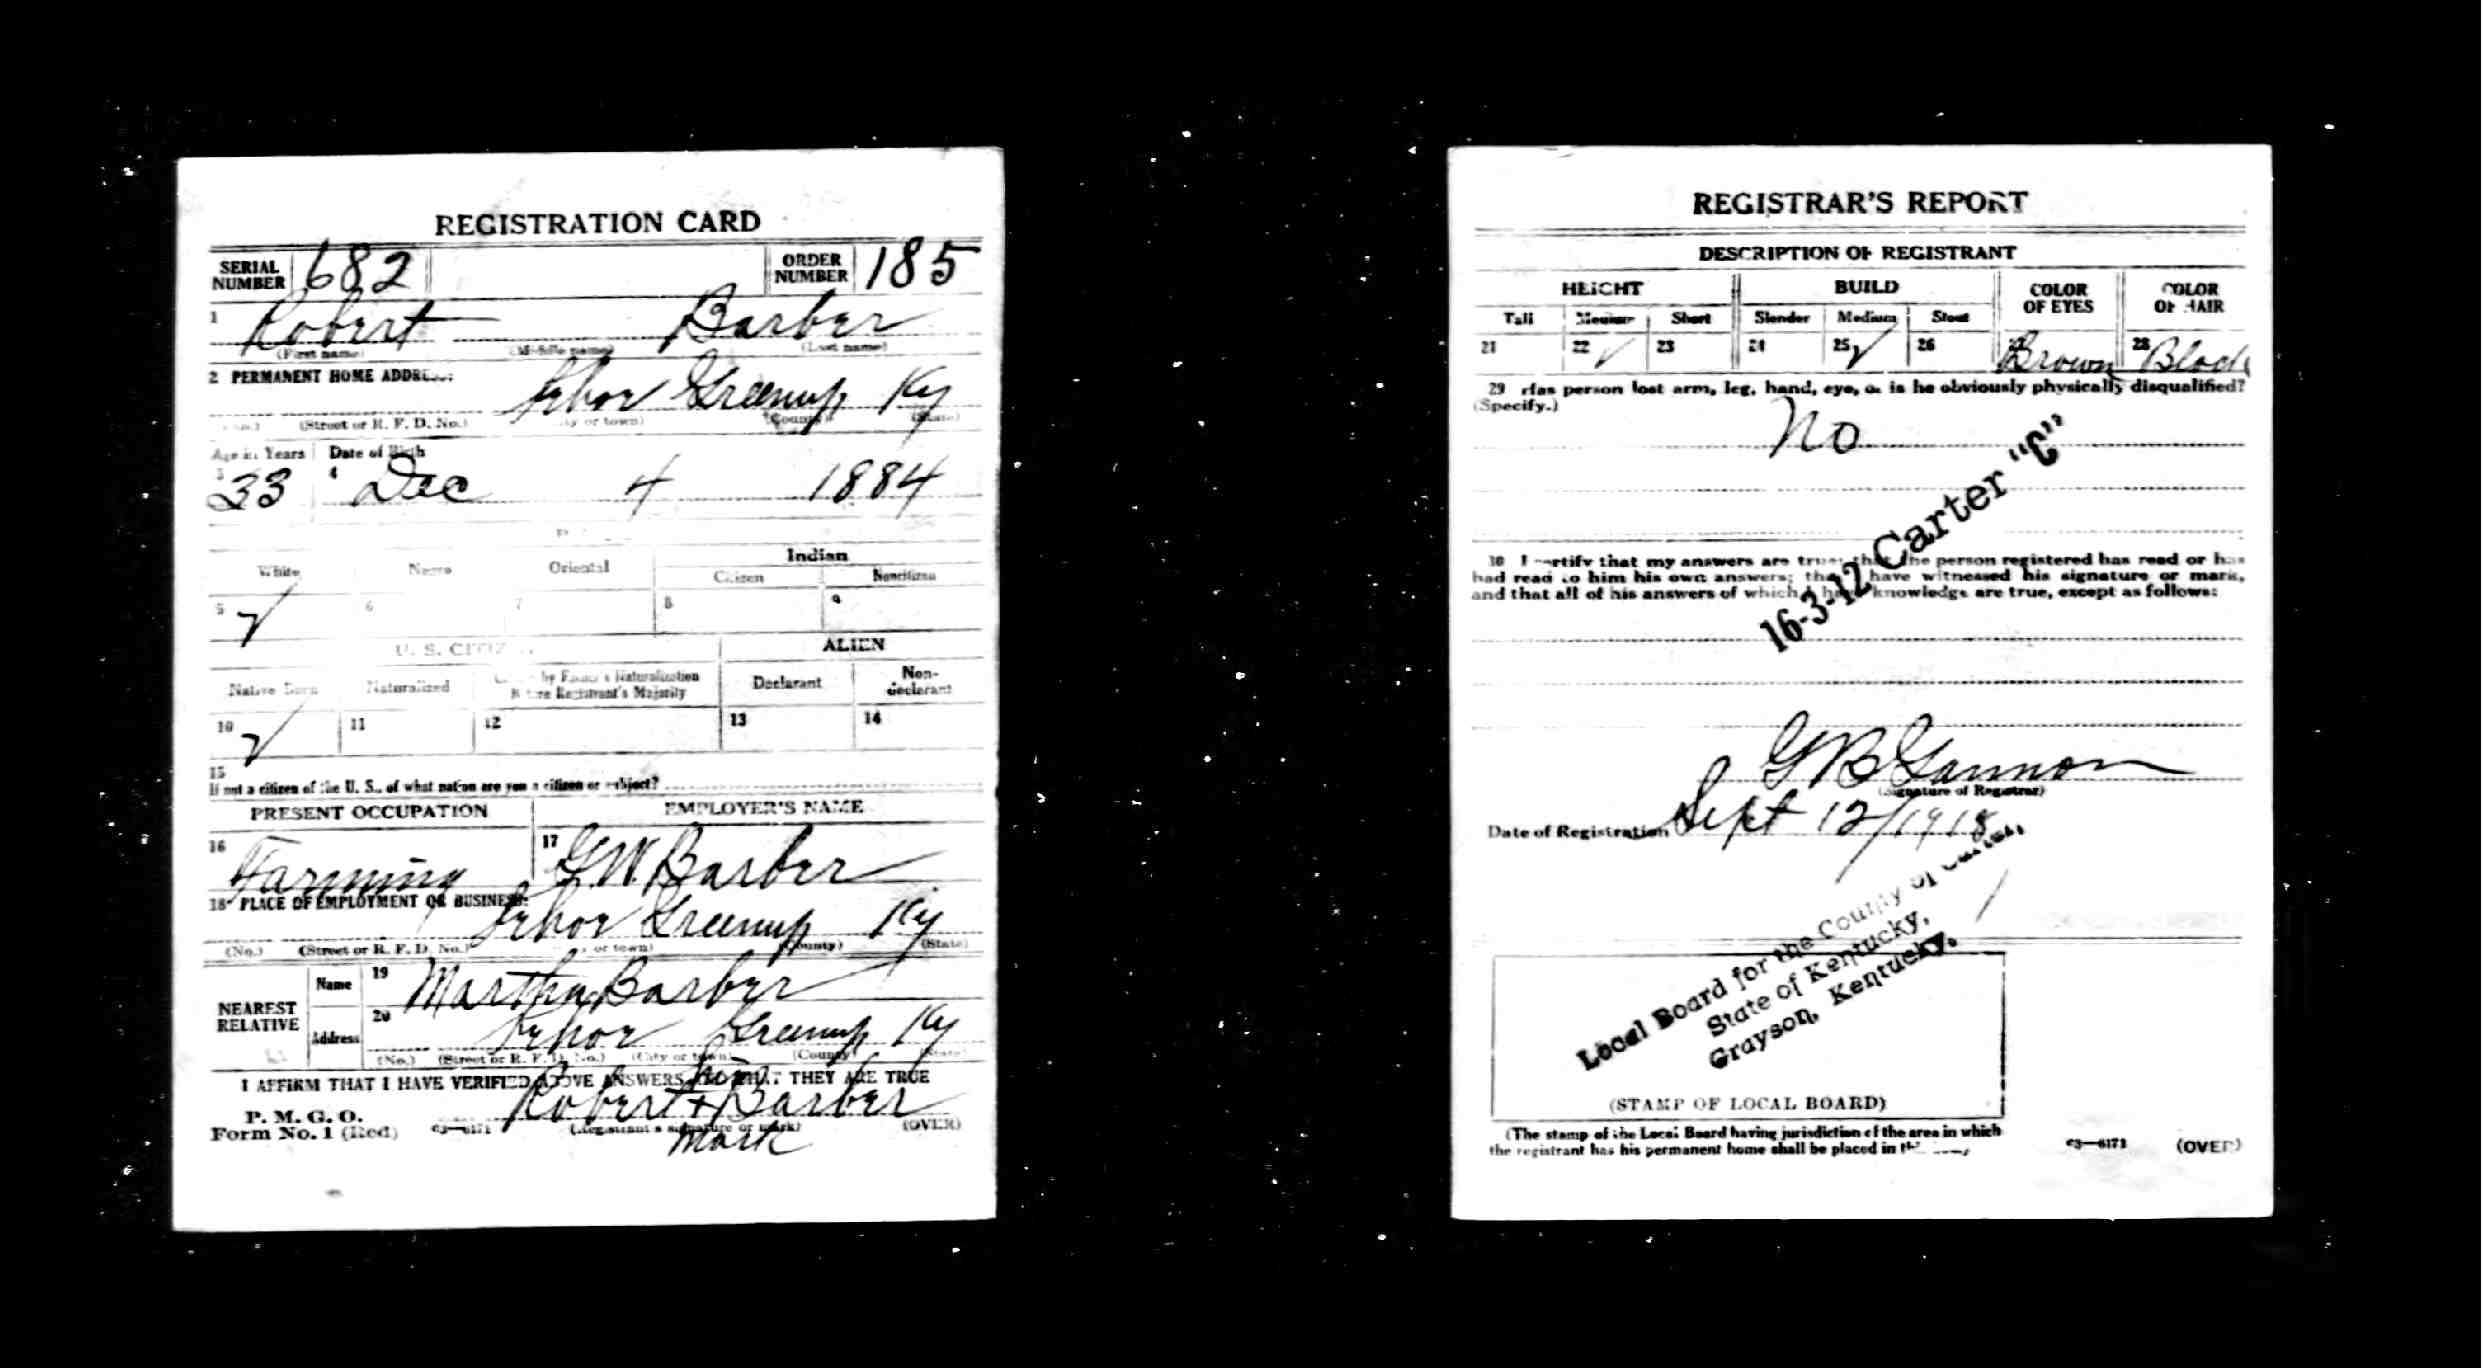 REGISTRATION CARD
SERIAL NUMBER 682 ORDER NUMBER 185
1 Robert Barber
(First name) (Middle name) (Last name)
2 PERMANENT HOME ADDRESS:
Greenup Ky
(No.) (Street or R. F. D. No.) (City or town) (County) (State)
Age in Years Date of Birth
3 4
33 Dec 4 1884
Indian
White Negro Oriental Citizen Noncitizen
5 ✓ 6 7 8 9
U. S. CITIZEN ALIEN
Native Born Naturalized Citizen by Father's Naturalization Before Registrant's Majority Declarant Non-declarant
10 ✓ 11 12 13 14
15
If not a citizen of the U. S., of what nation are you a citizen or subject?
PRESENT OCCUPATION EMPLOYER'S NAME
16 Farming 17 G.W. Barber
18 PLACE OF EMPLOYMENT OR BUSINESS:
Greenup Ky
(No.) (Street or R. F. D. No.) (City or town) (County) (State)
NEAREST RELATIVE
Name 19 Martha Barber
Address 20 Greenup Ky
(No.) (Street or R. F. D. No.) (City or town) (County) (State)
I AFFIRM THAT I HAVE VERIFIED ABOVE ANSWERS AND THAT THEY ARE TRUE
his
P. M. G. O.
Form No. 1 (Red) Robert + Barber
03—6171 (Registrant's signature or mark) (OVER)
mark
REGISTRAR'S REPORT
DESCRIPTION OF REGISTRANT
HEIGHT BUILD COLOR OF EYES COLOR OF HAIR
Tall Medium Short Slender Medium Stout
21 22 ✓ 23 24 25 ✓ 26 27 Brown 28 Black
29 Has person lost arm, leg, hand, eye, or is he obviously physically disqualified?
(Specify.)
No
16-3-12 Carter "C"
30 I certify that my answers are true; that the person registered has read or has
had read to him his own answers; that I have witnessed his signature or mark,
and that all of his answers of which I have knowledge are true, except as follows:
G B Gannon
(Signature of Registrar)
Date of Registration Sept 12/1918
Local Board for the County of Carter,
State of Kentucky,
Grayson, Kentucky.
(STAMP OF LOCAL BOARD)
(The stamp of the Local Board having jurisdiction of the area in which
the registrant has his permanent home shall be placed in this
03—6171 (OVER)